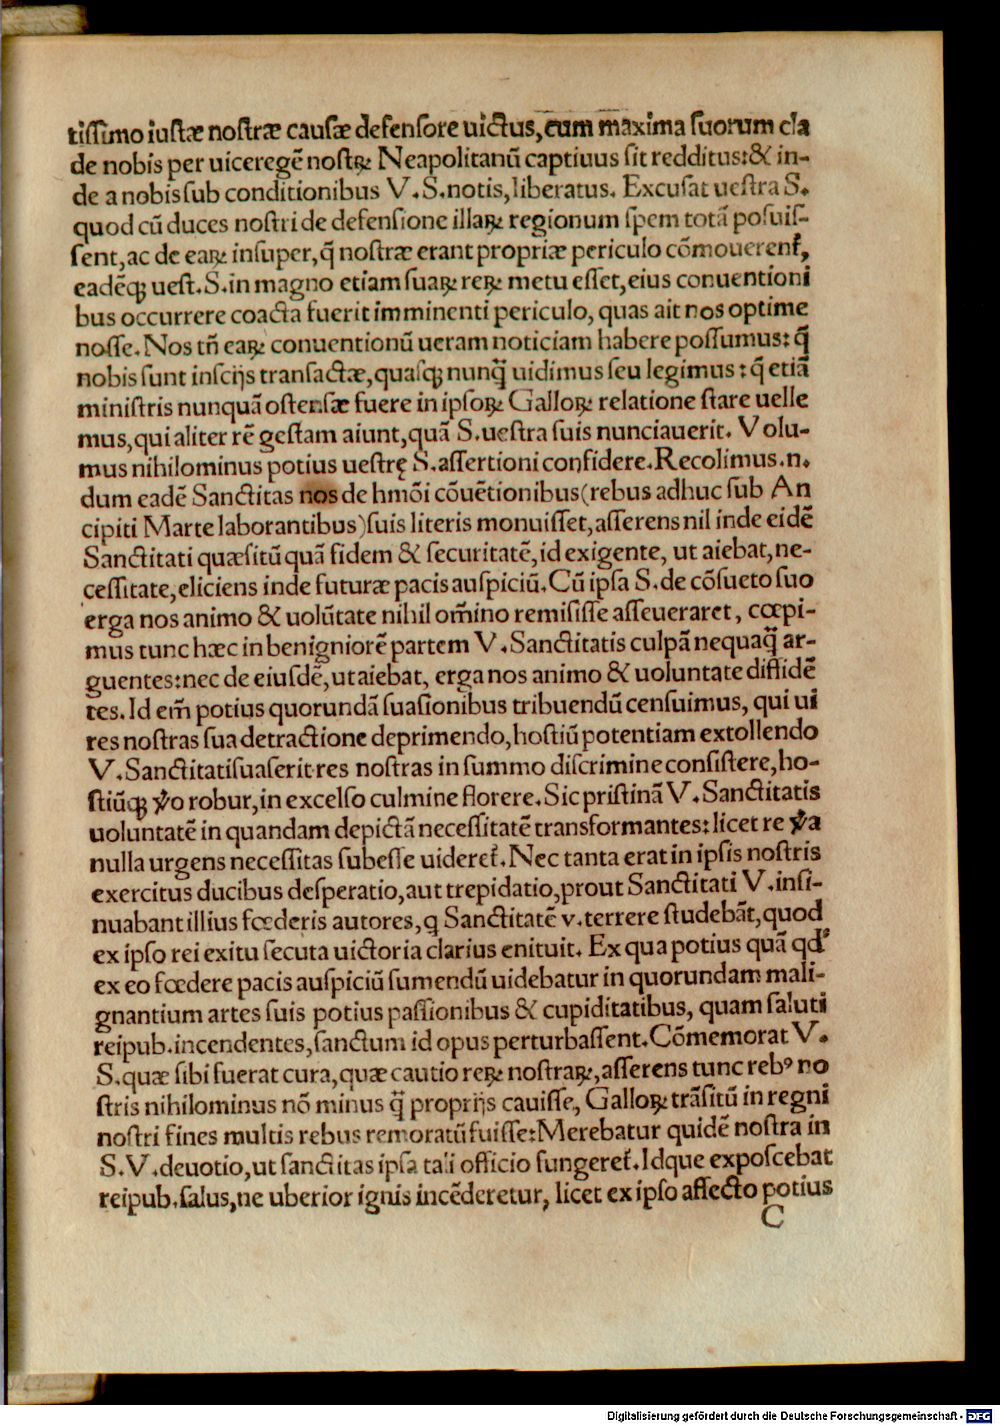 tissimo iustæ nostræ causæ defensore uictus, cum maxima suorum cla
de nobis per uiceregē nostrꝝ Neapolitanū captiuus sit redditus: & in-
de a nobis sub conditionibus V. S. notis, liberatus. Excusat uestra S.
quod cū duces nostri de defensione illaꝝ regionum spem totā posuis-
sent, ac de eaꝝ insuper, q̄ nostræ erant propriæ periculo cōmouerent᷑,
eadēqꝫ uest. S. in magno etiam suaꝝ reꝝ metu esset, eius conuentioni
bus occurrere coacta fuerit imminenti periculo, quas ait nos optime
nosse. Nos tñ eaꝝ conuentionū ueram noticiam habere possumus: q̄
nobis sunt inscijs transactæ, quasqꝫ nunq̄ uidimus seu legimus: q̄ etiā
ministris nunquā ostensæ fuere in ipsoꝝ Galloꝝ relatione stare uelle
mus, qui aliter rē gestam aiunt, quā S. uestra suis nunciauerit. Volu-
mus nihilominus potius uestrę S. assertioni confidere. Recolimus .n.
dum eadē Sanctitas nos de hmōi cōuētionibus (rebus adhuc sub An
cipiti Marte laborantibus) suis literis monuisset, asserens nil inde eidē
Sanctitati quæsitū quā fidem & securitatē, id exigente, ut aiebat, ne-
cessitate, eliciens inde futuræ pacis auspiciū. Cū ipsa S. de cōsueto suo
erga nos animo & uolūtate nihil om̄ino remisisse asseueraret, cœpi-
mus tunc hæc in benigniorē partem V. Sanctitatis culpā nequaq̄ ar-
guentes: nec de eiusdē, ut aiebat, erga nos animo & uoluntate diffidē
tes. Id em̄ potius quorundā suasionibus tribuendū censuimus, qui ui
res nostras sua detractione deprimendo, hostiū potentiam extollendo
V. Sanctitati suaserit res nostras in summo discrimine consistere, ho-
stiūqꝫ ꝟo robur, in excelso culmine florere. Sic pristinā V. Sanctitatis
uoluntatē in quandam depictā necessitatē transformantes: licet re ꝟa
nulla urgens necessitas subesse uideret᷑. Nec tanta erat in ipsis nostris
exercitus ducibus desperatio, aut trepidatio, prout Sanctitati V. insi-
nuabant illius fœderis autores, q Sanctitatē v. terrere studebāt, quod
ex ipso rei exitu secuta uictoria clarius enituit. Ex qua potius quā qd᷒
ex eo fœdere pacis auspiciū sumendū uidebatur in quorundam mali-
gnantium artes suis potius passionibus & cupiditatibus, quam saluti
reipub. incendentes, sanctum id opus perturbassent. Cōmemorat V.
S. quæ sibi fuerat cura, quæ cautio reꝝ nostraꝝ, asserens tunc rebꝰ no
stris nihilominus nō minus q̄ proprijs cauisse, Galloꝝ trāsitū in regni
nostri fines multis rebus remoratū fuisse: Merebatur quidē nostra in
S. V. deuotio, ut sanctitas ipsa tali officio fungeret᷑. Idque exposcebat
reipub. salus, ne uberior ignis incēderetur, licet ex ipso affecto potius
C
Digitalisierung gefördert durch die Deutsche Forschungsgemeinschaft - DFG